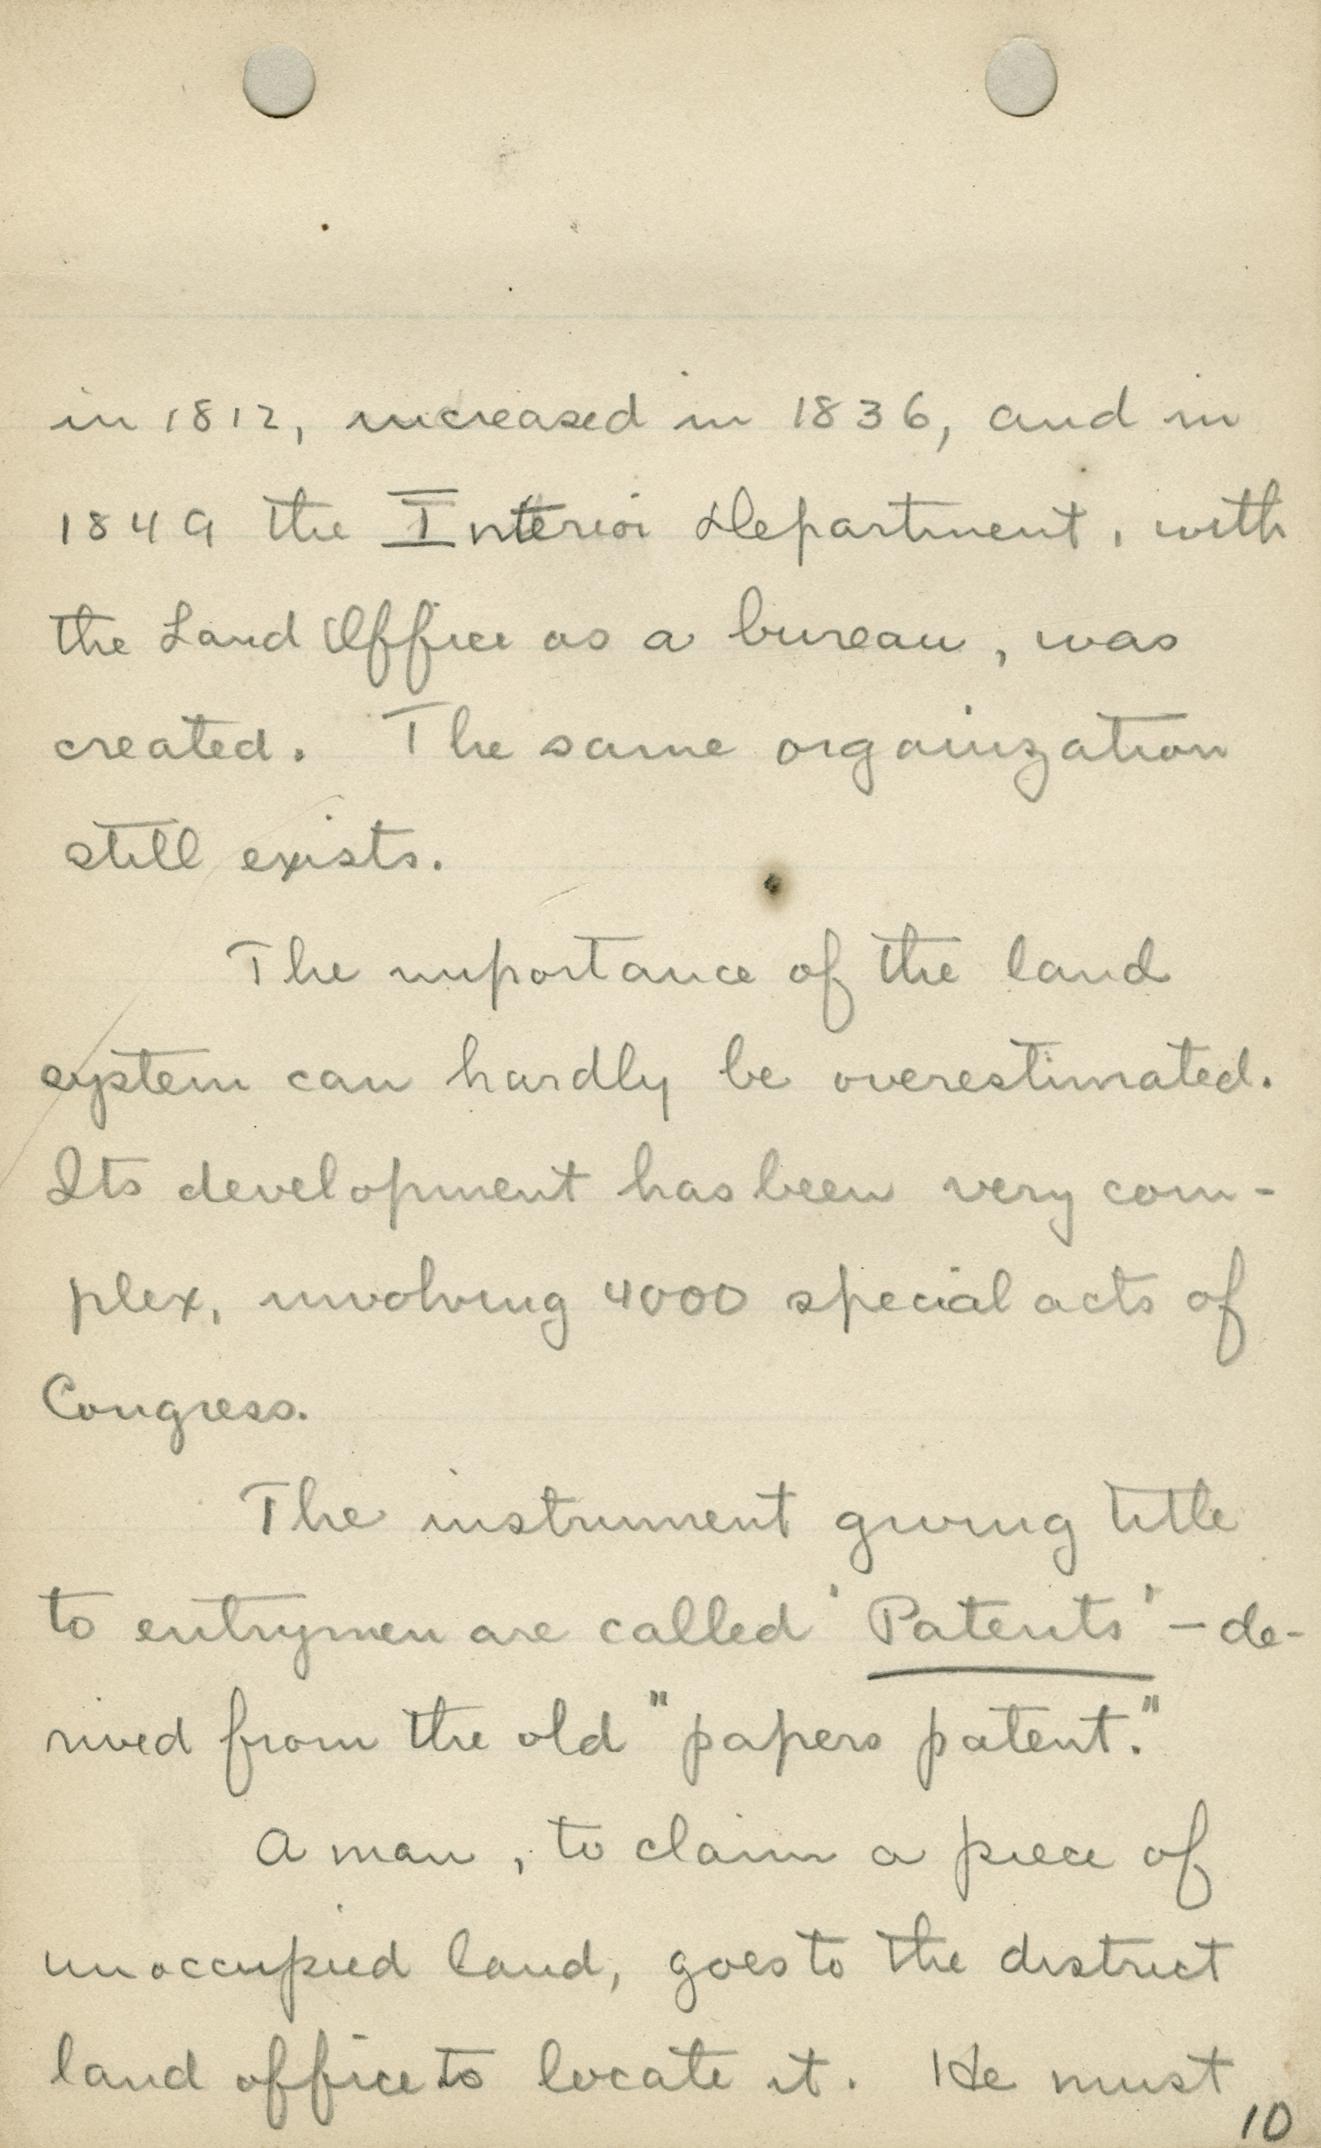 in 1812, increased in 1836, and in
1849 the Interior Department, with
the Land Office as a bureau, was
created. The same organization
still exists.
The importance of the land
system can hardly be overestimated.
Its development has been very com-
plex, involving 4000 special acts of
Congress.
The instrument giving title
to entrymen are called 'Patents' - de-
rived from the old "papers patent."
A man, to claim a piece of
unoccupied land, goes to the district
land office to locate it. He must
10